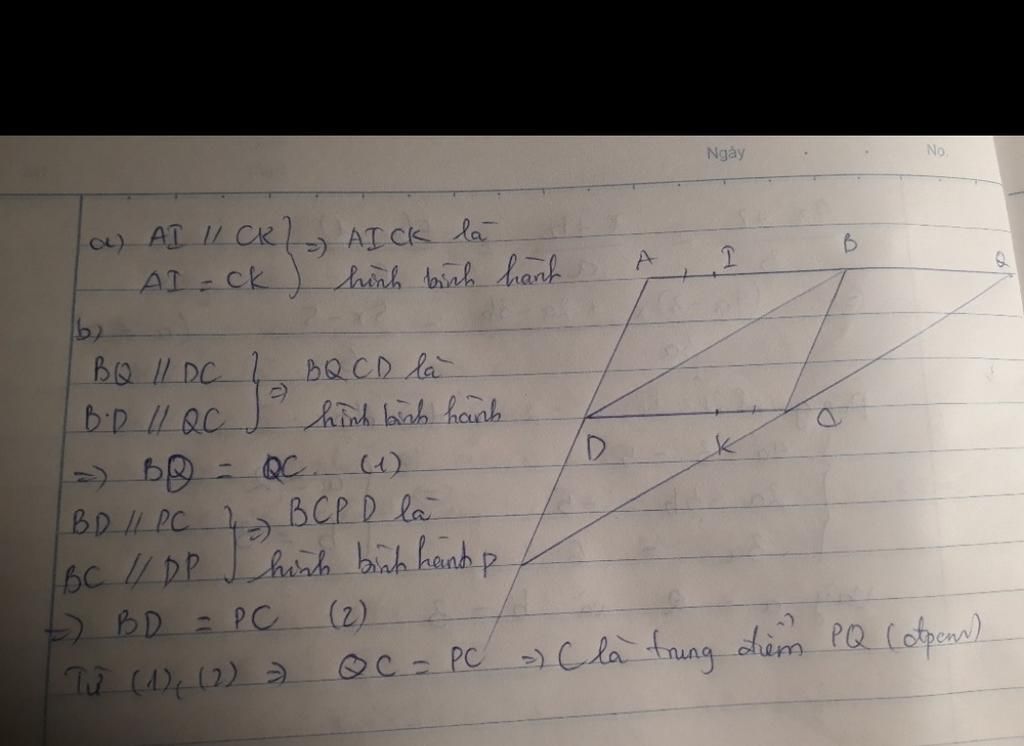 Ngày No.
a) AI // CK } => AICK là
AI = CK hình bình hành
b)
BQ // DC } => BQCD là
BD // QC hình bình hành
=> BQ = QC (1)
BD // PC } => BCPD là
BC // DP hình bình hành
=> BD = PC (2)
Từ (1), (2) => QC = PC => C là trung điểm PQ (đpcm)
A I B Q
D K C
P